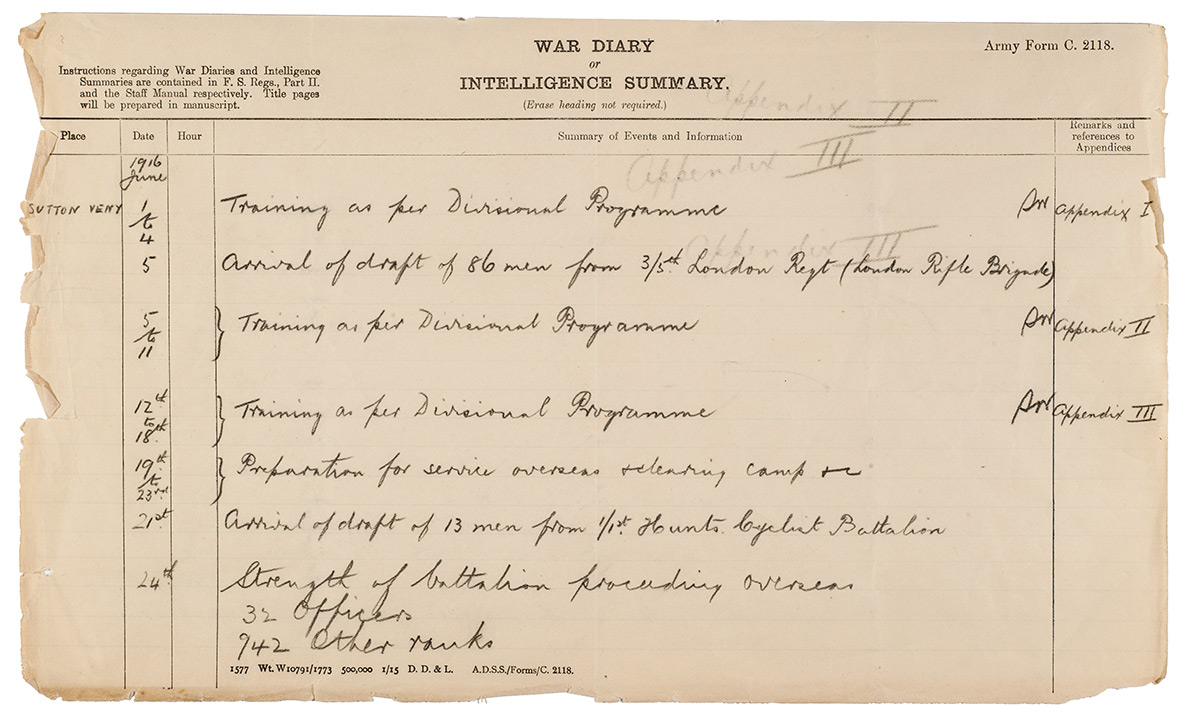 WAR DIARY
or
INTELLIGENCE SUMMARY.
(Erase heading not required.)
Army Form C. 2118.
Instructions regarding War Diaries and Intelligence
Summaries are contained in F. S. Regs., Part II.
and the Staff Manual respectively. Title pages
will be prepared in manuscript.
Appendix II
Place Date Hour Summary of Events and Information Remarks and
references to
Appendices
Appendix III
1916
June
SUTTON VENY 1 to 4 Training as per Divisional Programme Appendix I
Appendix III
5 Arrival of draft of 86 men from 3/5th London Regt (London Rifle Brigade)
5 to 11 } Training as per Divisional Programme Appendix II
12th to 18th } Training as per Divisional Programme Appendix III
19th to 23rd } Preparation for service overseas & clearing camp &c
21st Arrival of draft of 13 men from 1/1st Hunts. Cyclist Battalion
24th Strength of battalion proceeding overseas
32 Officers
942 Other ranks
1577 Wt. W10791/1773 500,000 1/15 D. D. & L. A.D.S.S./Forms/C. 2118.